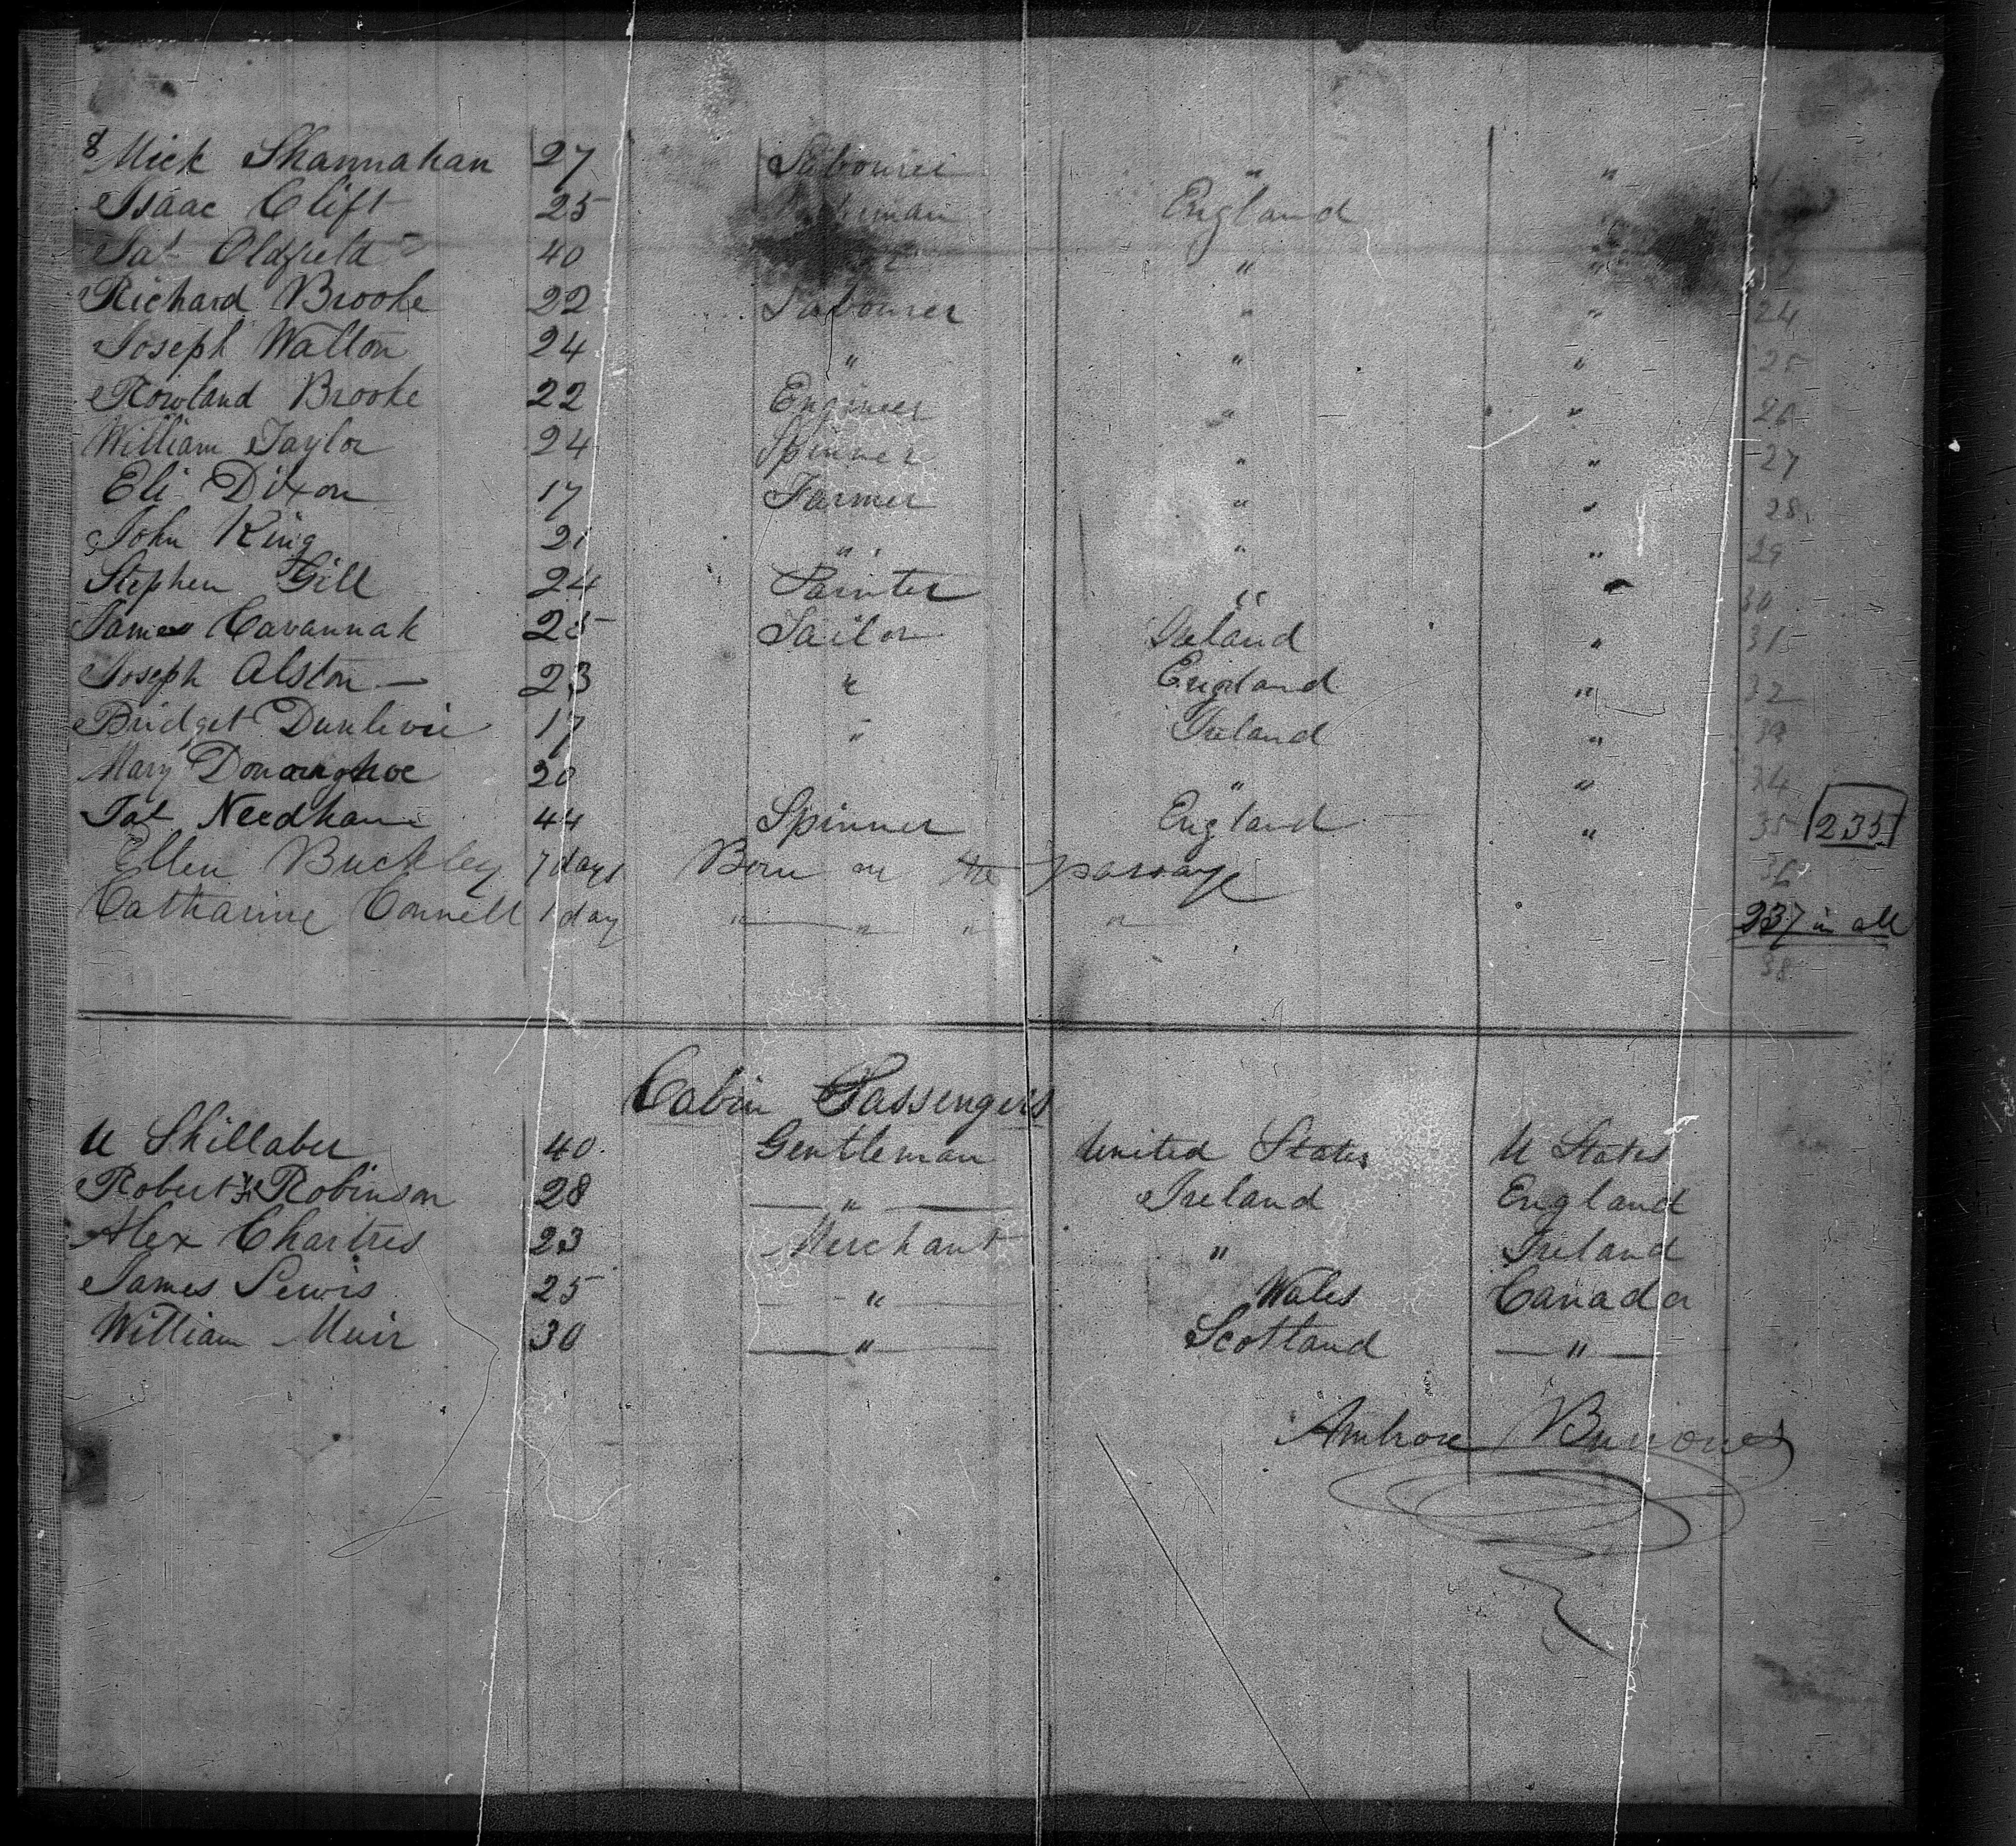 Mick Shannahan 27 Labourer " "
Isaac Clift 25 England "
Jas Oldfield 40 " "
Richard Brooke 22 Labourer " " 24
Joseph Walton 24 " " " 25
Rowland Brooke 22 Engineer " " 26
William Taylor 24 Spinner " " 27
Eli Dixon 17 Farmer " " 28
John King 21 " " " 29
Stephen Gill 24 Painter " " 30
James Cavannah 25 Sailor Ireland " 31
Joseph Alston 23 " England " 32
Bridget Dunlevie 17 " Ireland "
Mary Donaughoe 20 " " 34
Needham 44 Spinner England " 35 235
Ellen Buckley 7 days Born on the passage 36
Catharine Connell 1 day " " " " 237 in all
38
Cabin Passengers
U Shillaber 40 Gentleman United States U States
Robert Robinson 28 " Ireland England
Alex Chartres 23 Merchant " Ireland
James Lewis 25 " Wales Canada
William Muir 30 " Scotland "
Ambrose Burrows